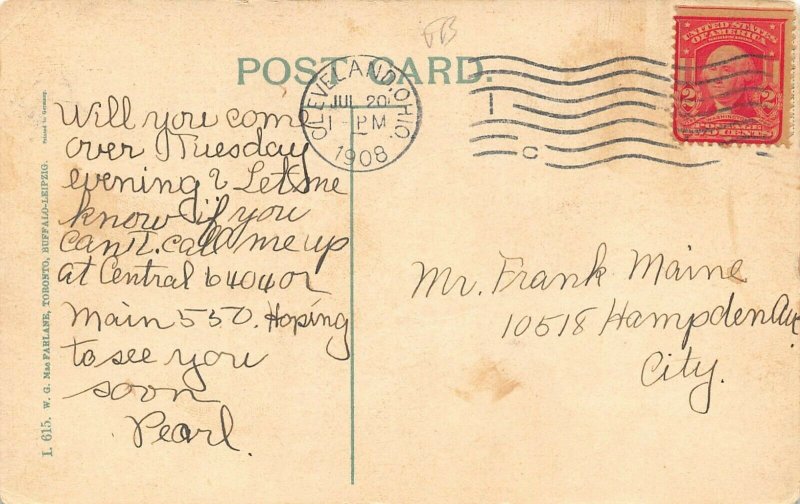 POST CARD.
CLEVELAND, OHIO.
JUL 20
1 - PM
1908
UNITED STATES
OF AMERICA
2 2
POSTAGE
TWO CENTS
Will you come
over Tuesday
evening? Let me
know if you
can't. call me up
at Central 6404 or
Main 550. Hoping
to see you
soon
Pearl.
Mr. Frank Maine
10518 Hampden Ave
City.
I. 615. W. G. MacFARLANE, TORONTO, BUFFALO-LEIPZIG.
Printed in Germany.